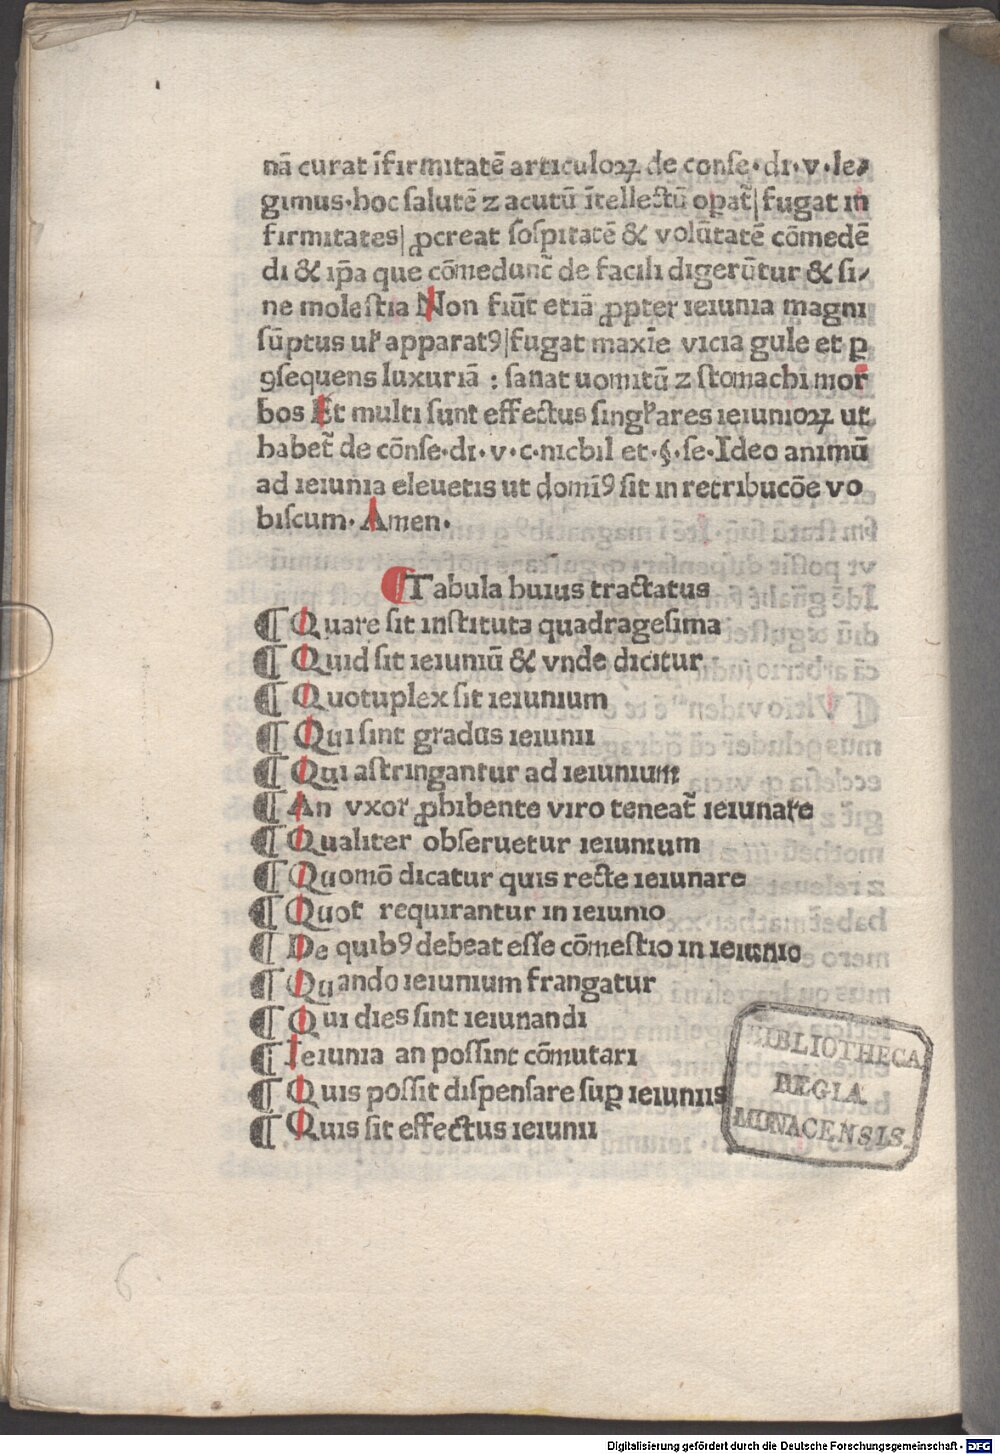 nā curat īfirmitatē articuloꝝ de conse·di·v·le⸗
gimus·hoc salutē ⁊ acutū ītellectū opat̄|fugat in
firmitates|ꝓcreat sospitatē & volūtatē cōmedē
di & ip̄a que cōmedunt̄ de facili digerūtur & si⸗
ne molestia Non fiūt etiā ꝓpter ieiunia magni
sūptus ul̛ apparatꝰ|fugat maxīe vicia gule et ꝑ
ꝯsequens luxuriā : sanat uomitū ⁊ stomachi mor
bos Et multi sunt effectus singl̛ares ieiunioꝝ ut
habet̄ de cōnse·di·v·c·nichil et·§·se·Ideo animū
ad ieiunia eleuetis ut domīꝰ sit in retribucōe vo
biscum·Amen·
¶Tabula huius tractatus
¶ Quare sit instituta quadragesima
¶ Quid sit ieiuniū & vnde dicitur
¶ Quotuplex sit ieiunium
¶ Qui sint gradus ieiunii
¶ Qui astringantur ad ieiunium
¶ An vxor ꝓhibente viro teneat̄ ieiunare
¶ Qualiter obseruetur ieiunium
¶ Quomō dicatur quis recte ieiunare
¶ Quot requirantur in ieiunio
¶ De quibꝰ debeat esse cōmestio in ieiunio
¶ Quando ieiunium frangatur
¶ Qui dies sint ieiunandi
¶ Ieiunia an possint cōmutari
¶ Quis possit dispensare suꝑ ieiuniis
¶ Quis sit effectus ieiunii
BIBLIOTHECA
REGIA
MONACENSIS.
6
Digitalisierung gefördert durch die Deutsche Forschungsgemeinschaft - DFG